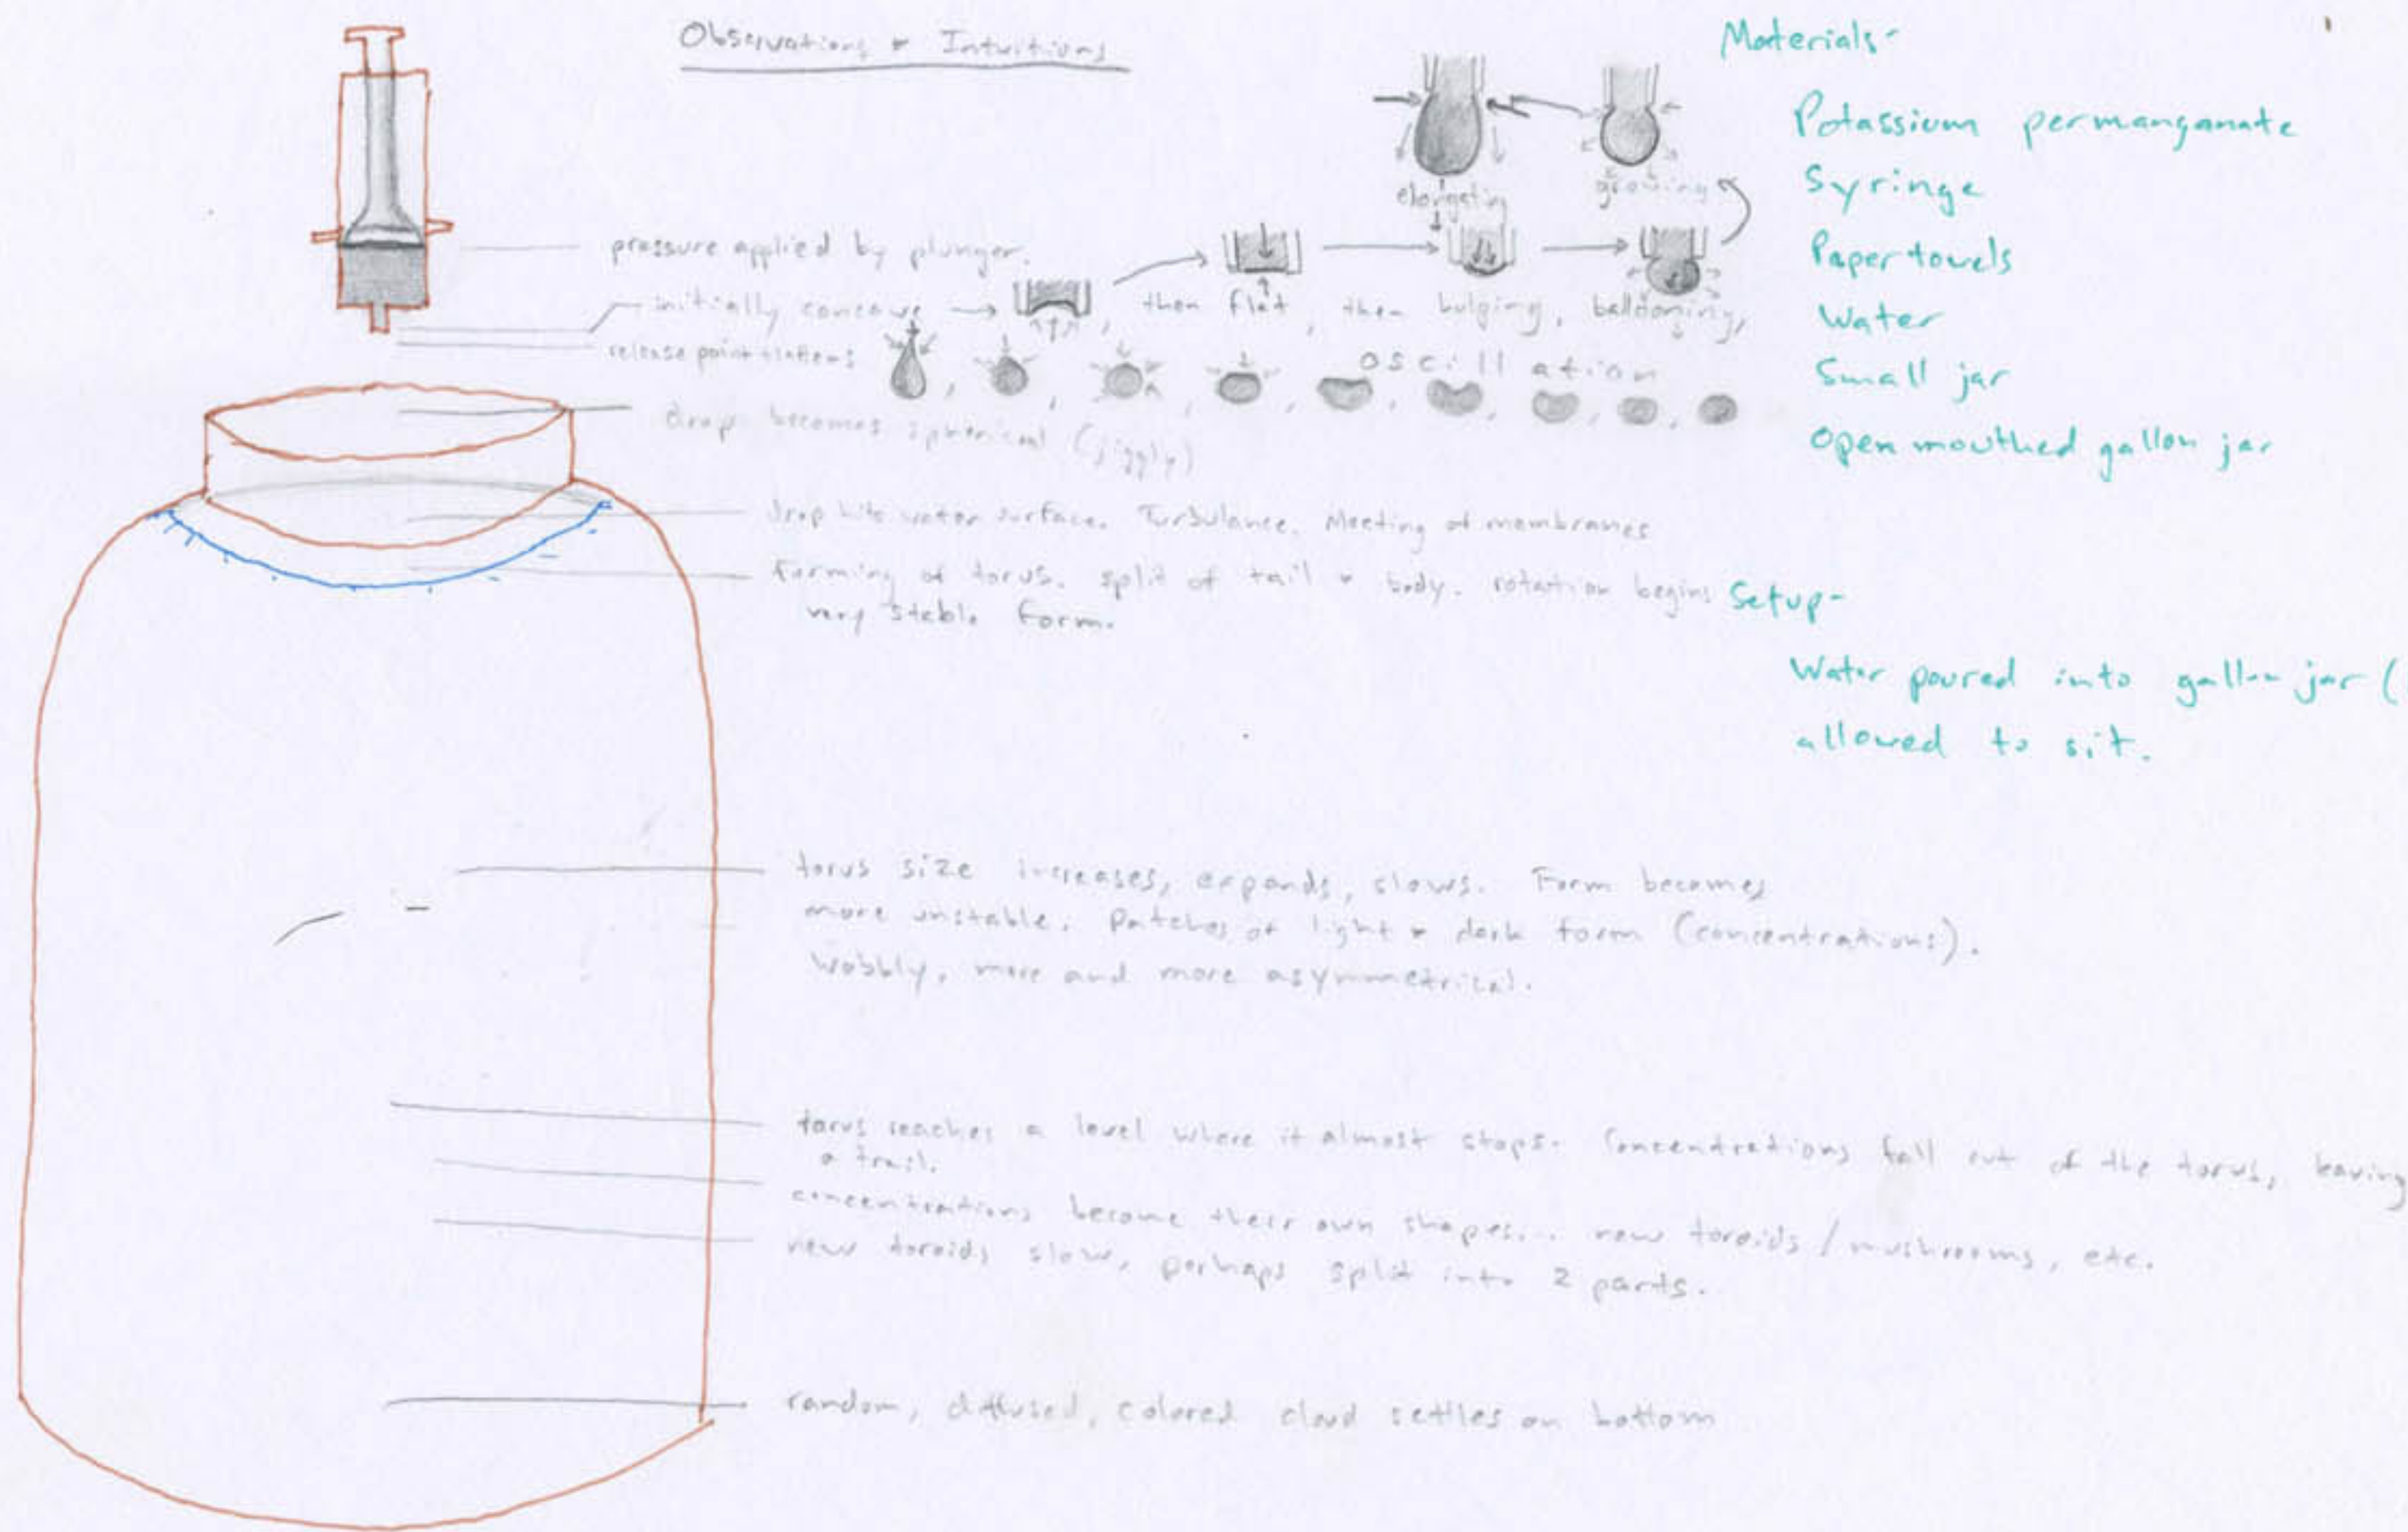 Observations & Intuitions
pressure applied by plunger.
initially concave → , then flat, then bulging, ballooning,
growing
elongating
release point flattens
oscillation
drop becomes spherical (jiggly)
drop hits water surface. Turbulance. Meeting of membranes
forming of torus. split of tail & body. rotation begins
very stable form.
torus size increases, expands, slows. Form becomes
more unstable. Patches of light & dark form (concentrations).
Wobbly, more and more asymmetrical.
torus reaches a level where it almost stops. Concentrations fall out of the torus, leaving
a trail.
concentrations become their own shapes... new toroids / mushrooms, etc.
new toroids slow, perhaps split into 2 parts.
random, diffused, colored cloud settles on bottom
Materials-
Potassium permanganate
Syringe
Paper towels
Water
Small jar
Open mouthed gallon jar
Setup-
Water poured into gallon jar (
allowed to sit.